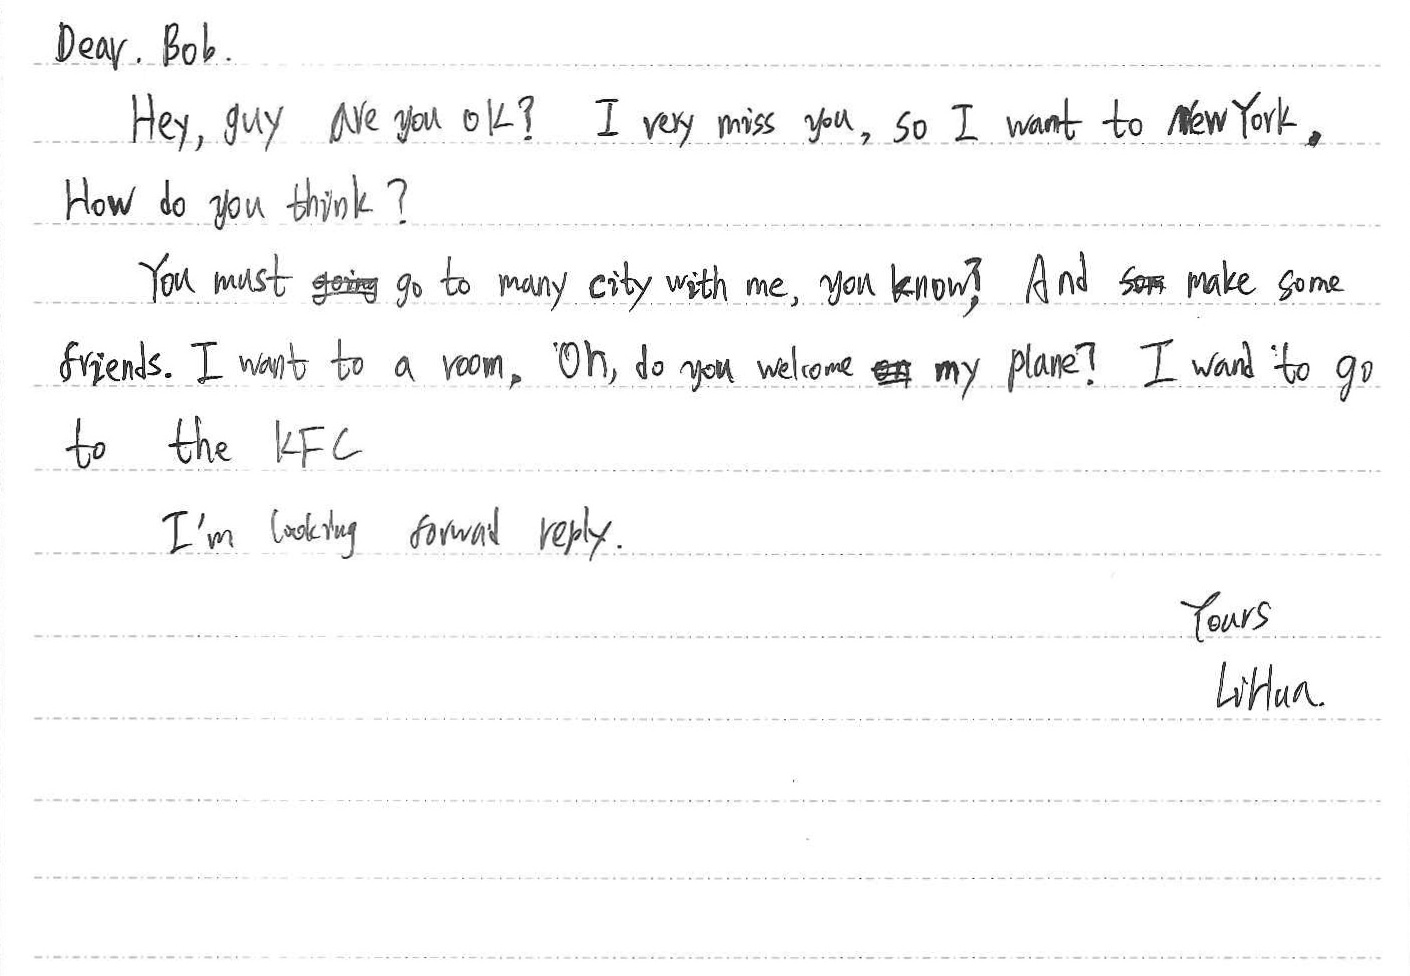 Dear. Bob.
Hey, guy are you ok? I very miss you, so I want to New York.
How do you think?
You must go to many city with me, you know? And make some
friends. I want to a room. Oh, do you welcome my plane? I wand to go
to the KFC
I'm looking forwad reply.
Yours
LiHua.